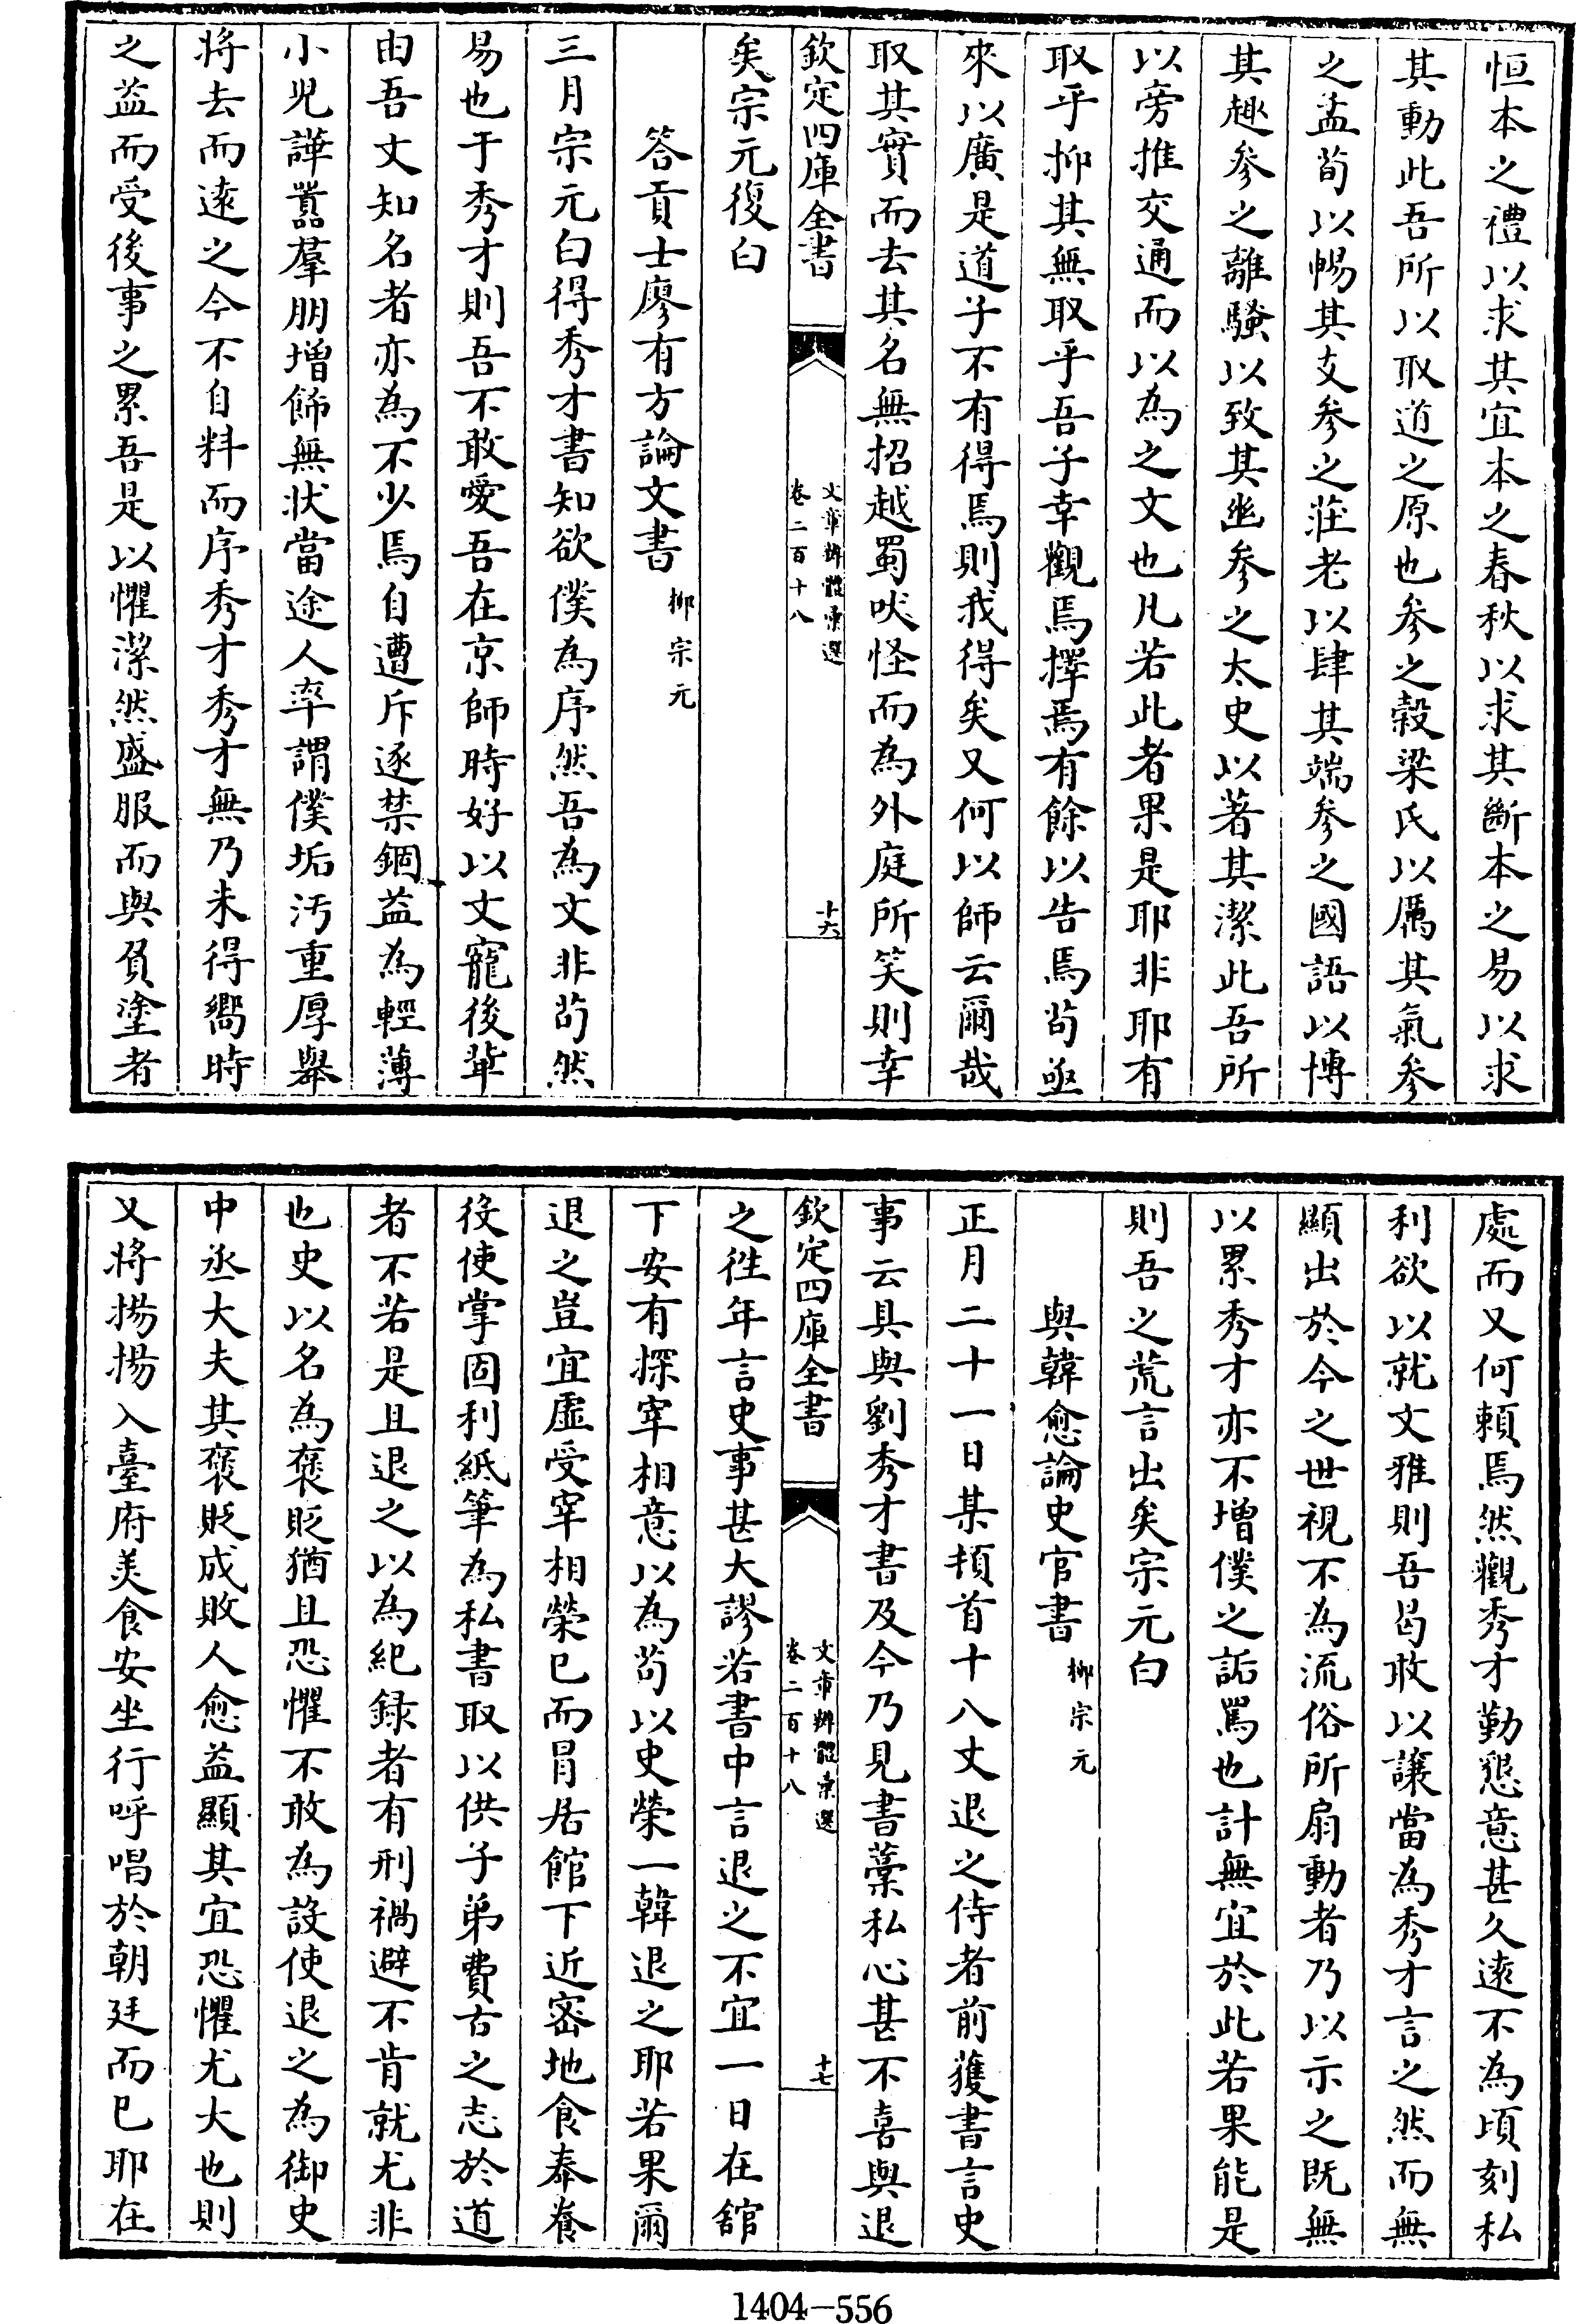 恒本之禮以求其宜本之春秋以求其斷本之易以求
其動此吾所以取道之原也參之榖梁氏以厲其氣參
之孟荀以暢其支參之莊老以肆其端參之國語以博
其趣參之離騷以致其幽參之太史以著其潔此吾所
以旁推交通而以為之文也凡若此者果是耶非耶有
取乎抑其無取乎吾子幸觀焉擇焉有餘以告焉茍亟
來以廣是道子不有得焉則我得矣又何以師云爾哉
取其實而去其名無招越蜀吠怪而為外庭所笑則幸
欽定四庫全書
文章辨體彙選
卷二百十八
十六
矣宗元復白
答貢士廖有方論文書
柳宗元
三月宗元白得秀才書知欲僕為序然吾為文非茍然
易也于秀才則吾不敢愛吾在京師時好以文寵後輩
由吾文知名者亦為不少焉自遭斥逐禁錮益為輕薄
小兒譁囂羣朋增飾無狀當途人率謂僕垢汚重厚舉
將去而遠之今不自料而序秀才秀才無乃未得嚮時
之益而受後事之累吾是以懼潔然盛服而與負塗者
處而又何賴焉然觀秀才勤懇意甚久遠不為頃刻私
利欲以就文雅則吾曷敢以讓當為秀才言之然而無
顯出於今之世視不為流俗所扇動者乃以示之既無
以累秀才亦不增僕之詬罵也計無宜於此若果能是
則吾之荒言出矣宗元白
與韓愈論史官書
柳宗元
正月二十一日某頓首十八丈退之侍者前獲書言史
事云具與劉秀才書及今乃見書藁私心甚不喜與退
欽定四庫全書
文章辨體彙選
卷二百十八
十七
之徃年言史事甚大謬若書中言退之不宜一日在舘
下安有探宰相意以為茍以史榮一韓退之耶若果爾
退之豈宜虛受宰相榮已而冒居館下近密地食奉養
役使掌固利紙筆為私書取以供子弟費古之志於道
者不若是且退之以為紀録者有刑禍避不肯就尤非
也史以名為褒貶猶且恐懼不敢為設使退之為御史
中丞大夫其褒貶成敗人愈益顯其宜恐懼尤大也則
又將揚揚入臺府美食安坐行呼唱於朝廷而已耶在
1404-556